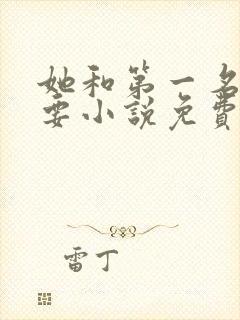 她和第一名
要小說免費
雷丁